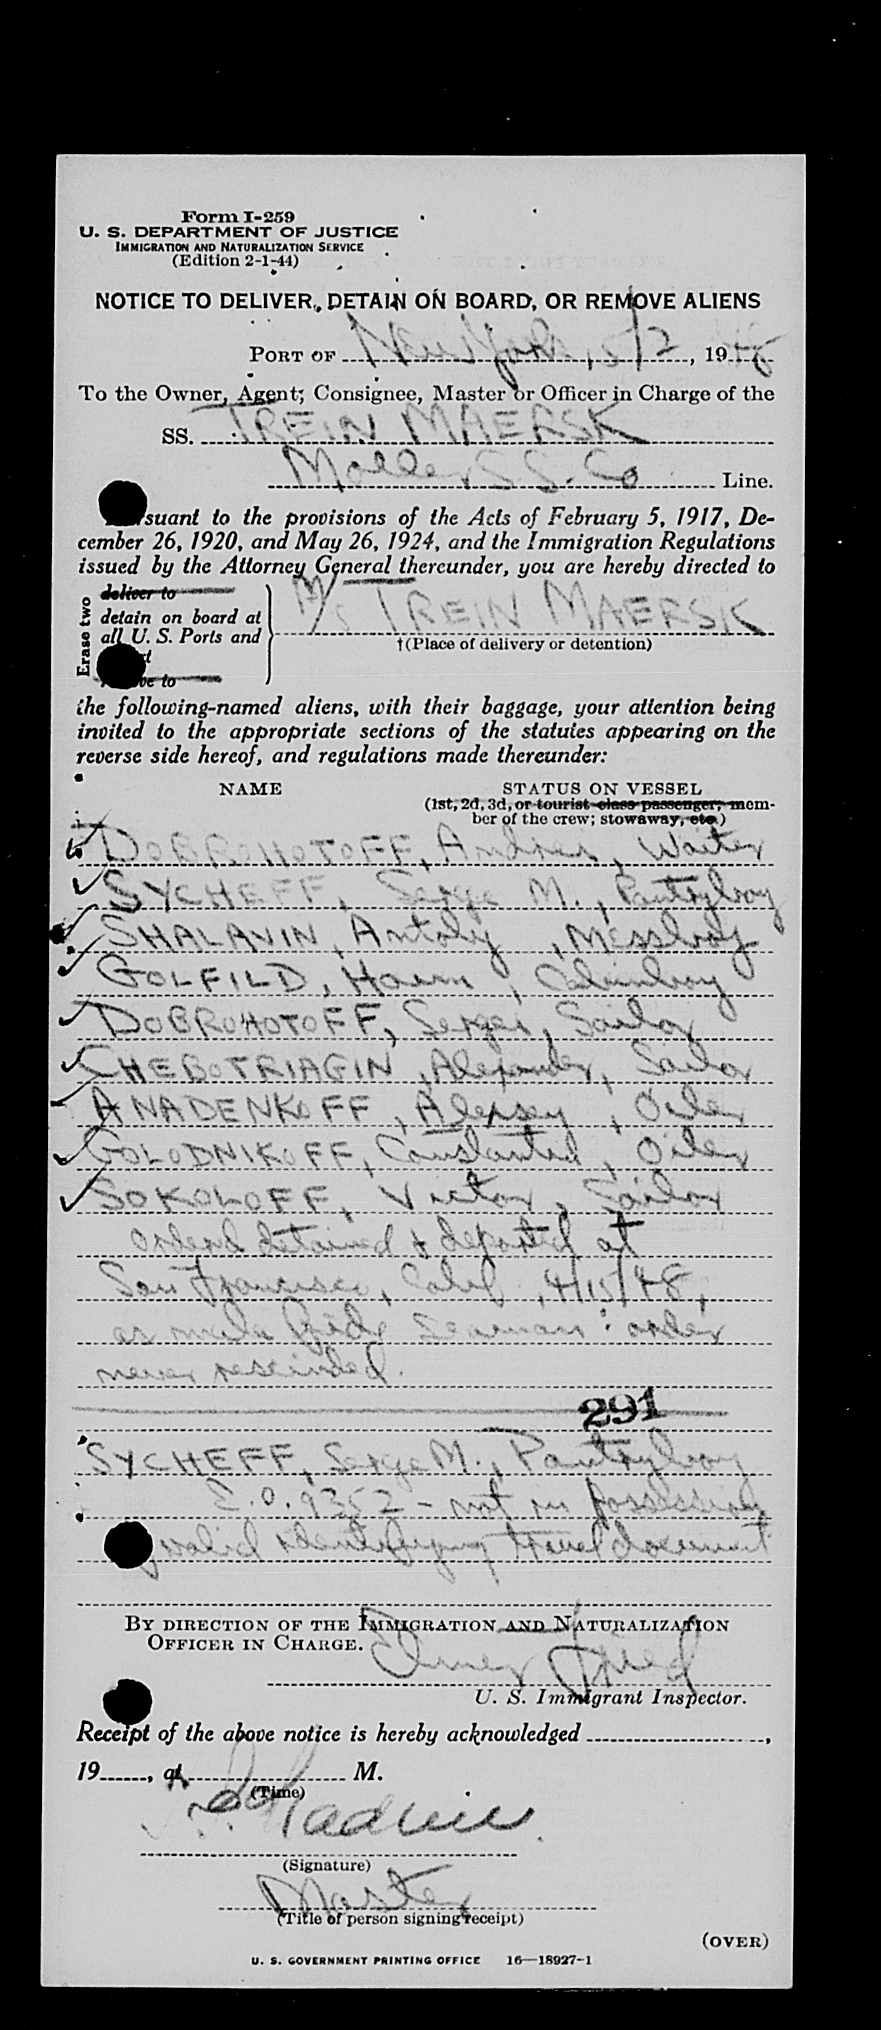 Form I-259
U. S. DEPARTMENT OF JUSTICE
IMMIGRATION AND NATURALIZATION SERVICE
(Edition 2-1-44)
NOTICE TO DELIVER, DETAIN ON BOARD, OR REMOVE ALIENS
PORT OF New York, 5/2, 1948
To the Owner, Agent, Consignee, Master or Officer in Charge of the
SS. TREIN MAERSK
Moller S.S. Co Line.
suant to the provisions of the Acts of February 5, 1917, De-
cember 26, 1920, and May 26, 1924, and the Immigration Regulations
issued by the Attorney General thereunder, you are hereby directed to
Erase two
deliver to
detain on board at
all U. S. Ports and
M/S TREIN MAERSK
†(Place of delivery or detention)
to
the following-named aliens, with their baggage, your attention being
invited to the appropriate sections of the statutes appearing on the
reverse side hereof, and regulations made thereunder:
NAME STATUS ON VESSEL
(1st, 2d, 3d, or tourist class passenger; mem-
ber of the crew; stowaway, etc.)
DOBROHOTOFF, Andrew, Waiter
SYCHEFF, Serge M., Pantryboy
SHALAVIN, Antoly, Messboy
GOLFILD, Haim, Cabinboy
DOBROHOTOFF, Sergei, Sailor
CHEBOTRIAGIN, Alexander, Sailor
ANADENKOFF, Alexsey, Oiler
GOLODNIKOFF, Constantin, Oiler
SOKOLOFF, Victor, Sailor
ordered detained & deported at
San Francisco, Calif, 4/15/48,
as mala fide seaman: order
never rescinded.
291
SYCHEFF, Serge M., Pantryboy
E.O. 9352 - not in possession
valid identifying travel document
BY DIRECTION OF THE IMMIGRATION AND NATURALIZATION
OFFICER IN CHARGE.
Elmer Fried
U. S. Immigrant Inspector.
Receipt of the above notice is hereby acknowledged ,
19 , at M.
(Time)
(Signature)
Master
(Title of person signing receipt)
(OVER)
U. S. GOVERNMENT PRINTING OFFICE 16—18927-1